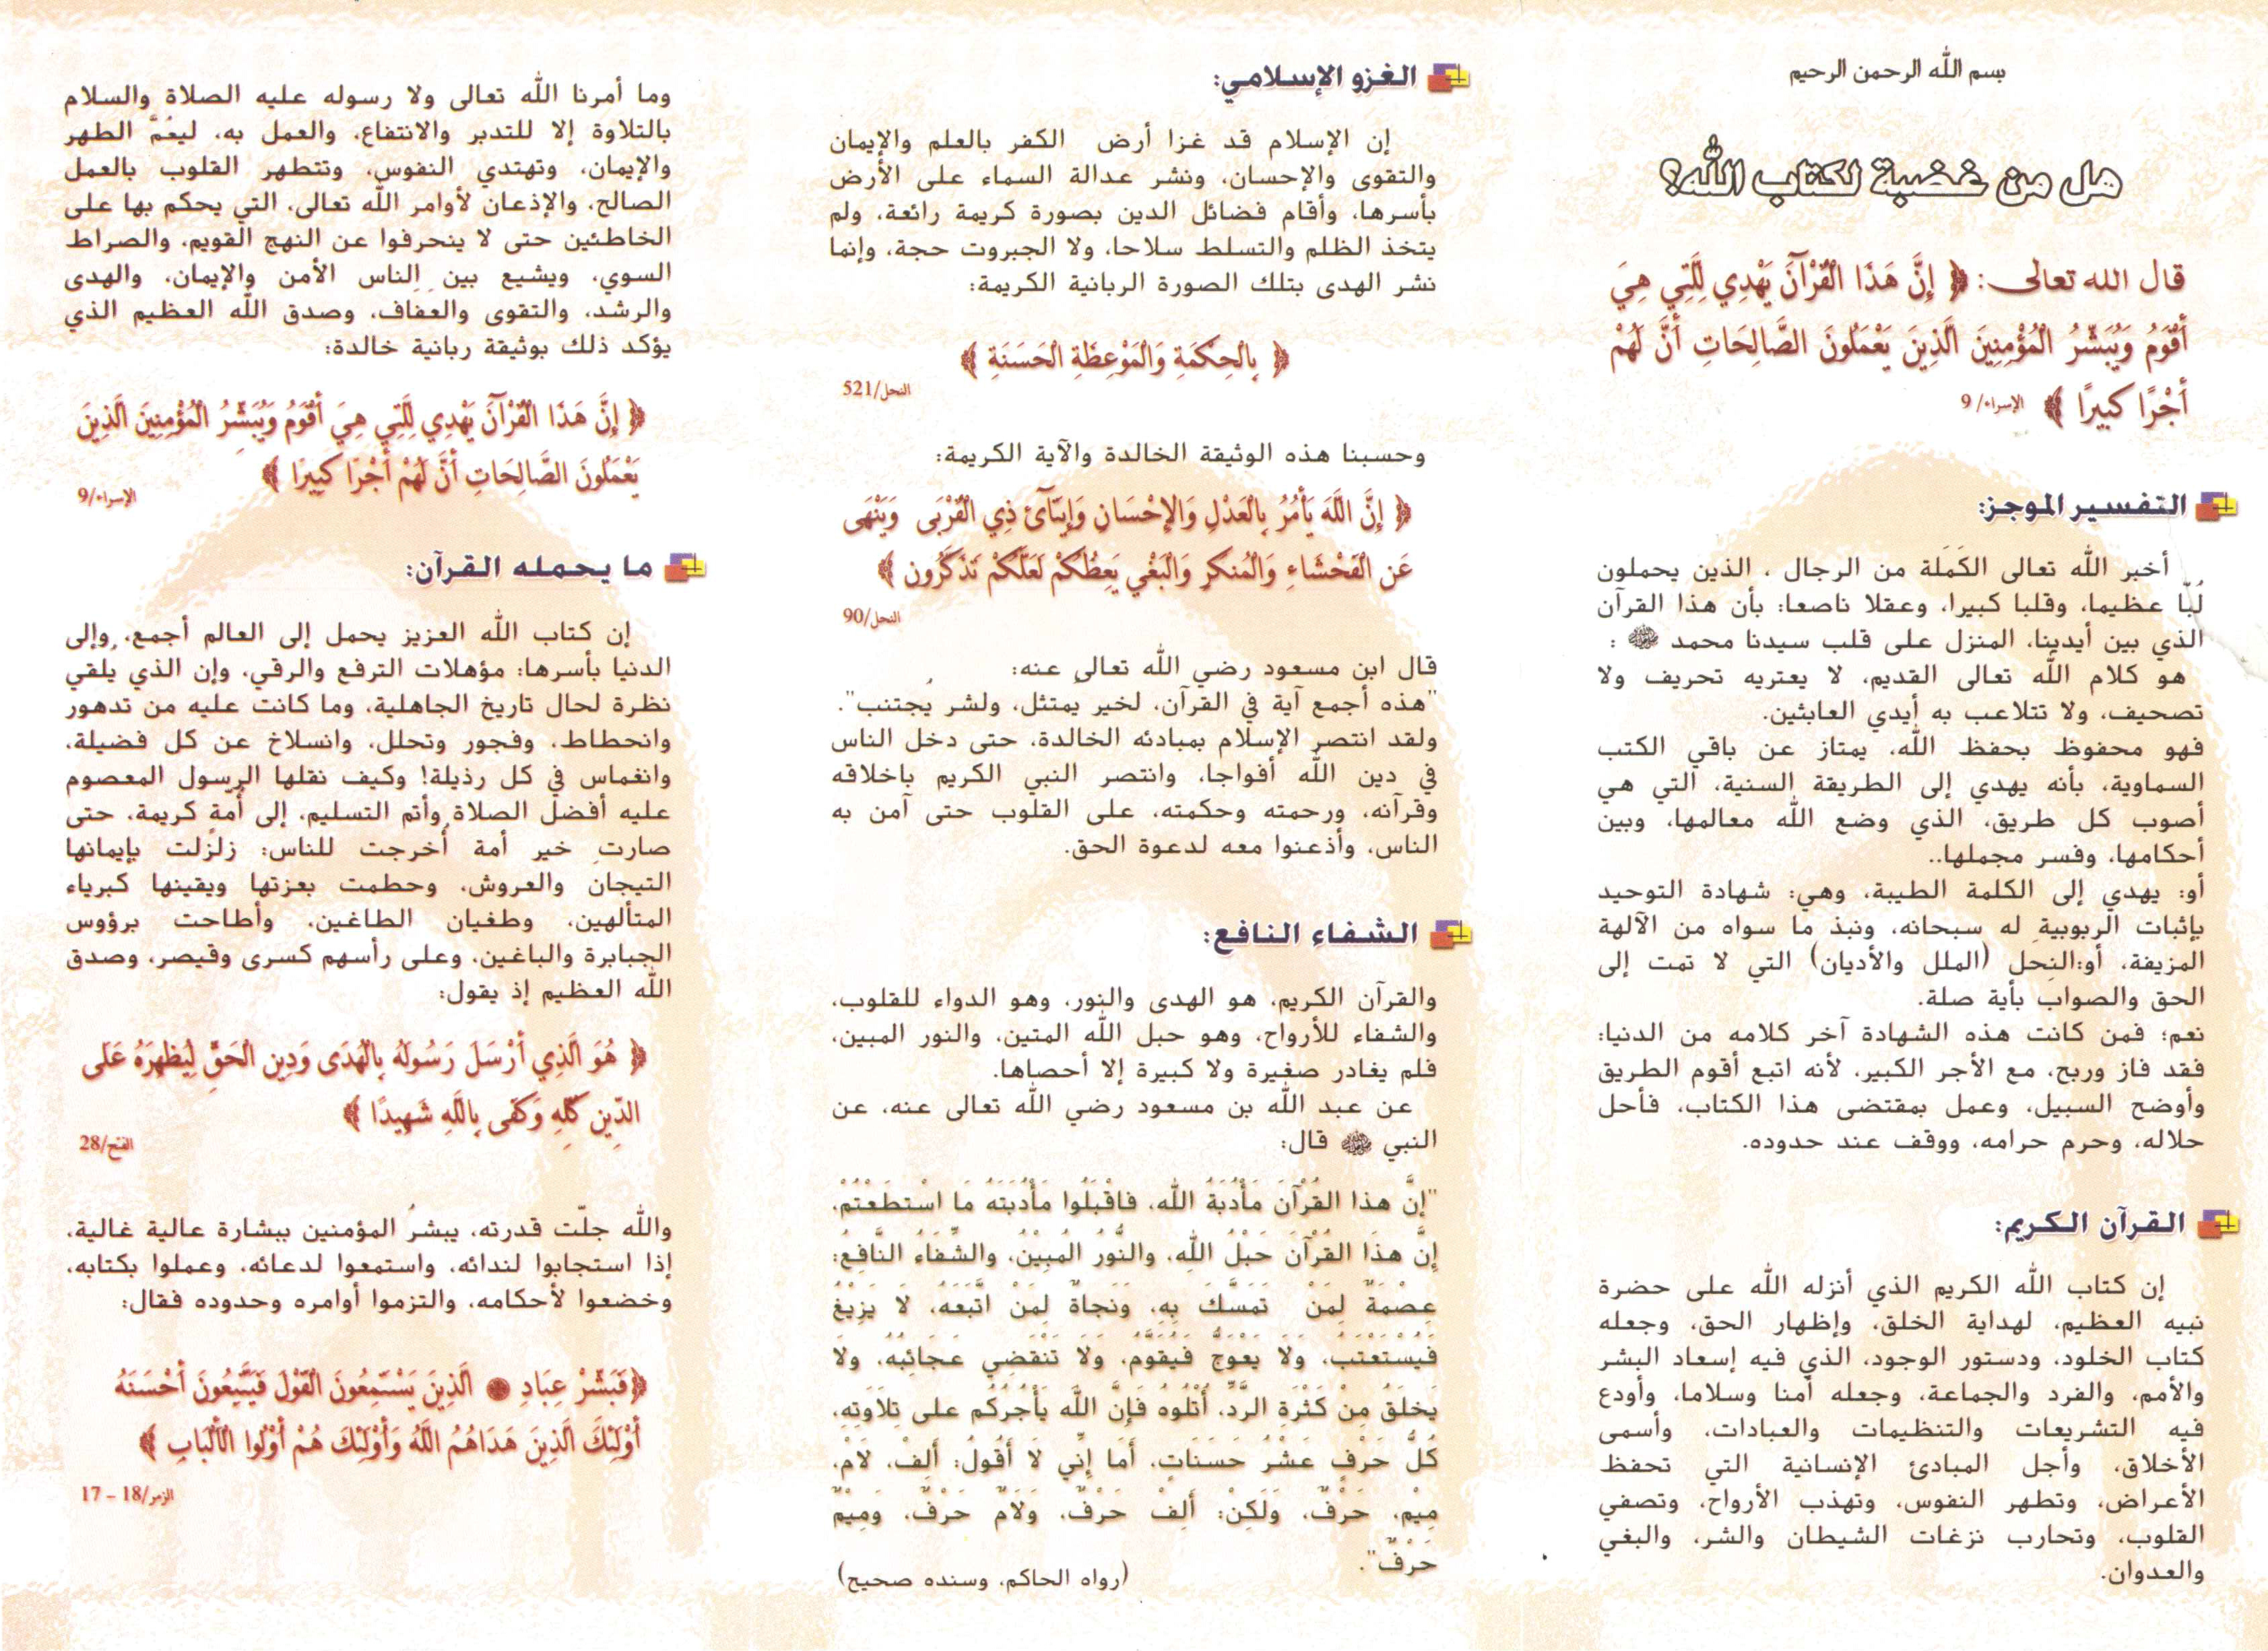 بسم الله الرحمن الرحيم
هل من غضبة لكتاب الله؟
قال الله تعالى: ﴿ إِنَّ هَذَا الْقُرْآنَ يَهْدِي لِلَّتِي هِيَ
أَقْوَمُ وَيُبَشِّرُ الْمُؤْمِنِينَ الَّذِينَ يَعْمَلُونَ الصَّالِحَاتِ أَنَّ لَهُمْ
أَجْرًا كَبِيرًا ﴾ الإسراء/ 9
التفسير الموجز:
أخبر الله تعالى الكَمَلَة من الرجال ، الذين يحملون
لُبّا عظيما، وقلبا كبيرا، وعقلا ناصعا: بأن هذا القرآن
الذي بين أيدينا، المنزل على قلب سيدنا محمد ﷺ :
هو كلام الله تعالى القديم، لا يعتريه تحريف ولا
تصحيف، ولا تتلاعب به أيدي العابثين.
فهو محفوظ بحفظ الله، يمتاز عن باقي الكتب
السماوية، بأنه يهدي إلى الطريقة السنية، التي هي
أصوب كل طريق، الذي وضع الله معالمها، وبين
أحكامها، وفسر مجملها..
أو: يهدي إلى الكلمة الطيبة، وهي: شهادة التوحيد
بإثبات الربوبية له سبحانه، ونبذ ما سواه من الآلهة
المزيفة، أو:النحل (الملل والأديان) التي لا تمت إلى
الحق والصواب بأية صلة.
نعم؛ فمن كانت هذه الشهادة آخر كلامه من الدنيا:
فقد فاز وربح، مع الأجر الكبير، لأنه اتبع أقوم الطريق
وأوضح السبيل، وعمل بمقتضى هذا الكتاب، فأحل
حلاله، وحرم حرامه، ووقف عند حدوده.
القرآن الكريم:
إن كتاب الله الكريم الذي أنزله الله على حضرة
نبيه العظيم، لهداية الخلق، وإظهار الحق، وجعله
كتاب الخلود، ودستور الوجود، الذي فيه إسعاد البشر
والأمم، والفرد والجماعة، وجعله أمنا وسلاما، وأودع
فيه التشريعات والتنظيمات والعبادات، وأسمى
الأخلاق، وأجل المبادئ الإنسانية التي تحفظ
الأعراض، وتطهر النفوس، وتهذب الأرواح، وتصفي
القلوب، وتحارب نزغات الشيطان والشر، والبغي
والعدوان.
الغزو الإسلامي:
إن الإسلام قد غزا أرض الكفر بالعلم والإيمان
والتقوى والإحسان، ونشر عدالة السماء على الأرض
بأسرها، وأقام فضائل الدين بصورة كريمة رائعة، ولم
يتخذ الظلم والتسلط سلاحا، ولا الجبروت حجة، وإنما
نشر الهدى بتلك الصورة الربانية الكريمة:
﴿ بِالْحِكْمَةِ وَالْمَوْعِظَةِ الْحَسَنَةِ ﴾
النحل/521
وحسبنا هذه الوثيقة الخالدة والآية الكريمة:
﴿ إِنَّ اللَّهَ يَأْمُرُ بِالْعَدْلِ وَالإِحْسَانِ وَإِيتَآئِ ذِي الْقُرْبَى وَيَنْهَى
عَنِ الْفَحْشَاءِ وَالْمُنكَرِ وَالْبَغْيِ يَعِظُكُمْ لَعَلَّكُمْ تَذَكَّرُون ﴾
النحل/90
قال ابن مسعود رضي الله تعالى عنه:
"هذه أجمع آية في القرآن، لخير يمتثل، ولشر يجتنب".
ولقد انتصر الإسلام بمبادئه الخالدة، حتى دخل الناس
في دين الله أفواجا، وانتصر النبي الكريم باخلاقه
وقرآنه، ورحمته وحكمته، على القلوب حتى آمن به
الناس، وأذعنوا معه لدعوة الحق.
الشفاء النافع:
والقرآن الكريم، هو الهدى والنور، وهو الدواء للقلوب،
والشفاء للأرواح، وهو حبل الله المتين، والنور المبين،
فلم يغادر صغيرة ولا كبيرة إلا أحصاها.
عن عبد الله بن مسعود رضي الله تعالى عنه، عن
النبي ﷺ قال:
"إنَّ هذا القُرْآنَ مَأْدُبَةُ الله، فاقْبَلُوا مَأْدُبَتَهُ مَا اسْتطَعْتُمْ،
إنَّ هذَا القُرْآنَ حَبْلُ اللهِ، والنُّورُ المُبِيْنُ، والشِّفَاءُ النَّافِعُ:
عِصْمَةٌ لِمَنْ تَمَسَّكَ بِهِ، وَنَجاةٌ لِمَنْ اتَّبَعَهُ، لا يَزِيْغُ
فَيُسْتَعْتَبُ، ولَا يَعْوَجُّ فَيُقَوَّمُ، ولَا تَنْقَضِي عَجَائِبُه، ولَا
يَخلَقُ مِنْ كَثْرَةِ الرَّدِّ، أُتْلُوهُ فَإِنَّ اللَّهَ يَأْجُرُكُم على تِلَاوَتِهِ،
كُلُّ حَرْفٍ عَشْرُ حَسَنَاتٍ، أمَا إنِّي لَا أَقُولُ: ألِفْ، لَامْ،
مِيْم، حَرْفٌ، وَلَكِنْ: أَلِفْ حَرْفٌ، وَلَامٌ حَرْفٌ، وَمِيْمٌ
حَرْفٌ".
(رواه الحاكم، وسنده صحيح)
وما أمرنا الله تعالى ولا رسوله عليه الصلاة والسلام
بالتلاوة إلا للتدبر والانتفاع، والعمل به، ليعُمَّ الطهر
والإيمان، وتهتدي النفوس، وتتطهر القلوب بالعمل
الصالح، والإذعان لأوامر الله تعالى، التي يحكم بها على
الخاطئين حتى لا ينحرفوا عن النهج القويم، والصراط
السوي، ويشيع بين الناس الأمن والإيمان، والهدى
والرشد، والتقوى والعفاف، وصدق الله العظيم الذي
يؤكد ذلك بوثيقة ربانية خالدة:
﴿ إِنَّ هَذَا الْقُرْآنَ يَهْدِي لِلَّتِي هِيَ أَقْوَمُ وَيُبَشِّرُ الْمُؤْمِنِينَ الَّذِينَ
يَعْمَلُونَ الصَّالِحَاتِ أَنَّ لَهُمْ أَجْرًا كَبِيرًا ﴾
الإسراء/9
ما يحمله القرآن:
إن كتاب الله العزيز يحمل إلى العالم أجمع، وإلى
الدنيا بأسرها: مؤهلات الترفع والرقي، وإن الذي يلقي
نظرة لحال تاريخ الجاهلية، وما كانت عليه من تدهور
وانحطاط، وفجور وتحلل، وانسلاخ عن كل فضيلة،
وانغماس في كل رذيلة! وكيف نقلها الرسول المعصوم
عليه أفضل الصلاة وأتم التسليم، إلى أُمّةٍ كريمة، حتى
صارت خير أمة أُخرجت للناس: زلزلت بإيمانها
التيجان والعروش، وحطمت بعزتها ويقينها كبرياء
المتألهين، وطغيان الطاغين، وأطاحت برؤوس
الجبابرة والباغين، وعلى رأسهم كسرى وقيصر، وصدق
الله العظيم إذ يقول:
﴿ هُوَ الَّذِي أَرْسَلَ رَسُولَهُ بِالْهُدَى وَدِينِ الْحَقِّ لِيُظْهِرَهُ عَلَى
الدِّينِ كُلِّهِ وَكَفَى بِاللَّهِ شَهِيدًا ﴾
الفتح/28
والله جلّت قدرته، يبشرُ المؤمنين ببشارة عالية غالية،
إذا استجابوا لندائه، واستمعوا لدعائه، وعملوا بكتابه،
وخضعوا لأحكامه، والتزموا أوامره وحدوده فقال:
﴿فَبَشِّرْ عِبَادِ ● الَّذِينَ يَسْتَمِعُونَ الْقَوْلَ فَيَتَّبِعُونَ أَحْسَنَهُ
أُوْلَئِكَ الَّذِينَ هَدَاهُمُ اللَّهُ وَأُوْلَئِكَ هُمْ أُوْلُوا الْأَلْبَابِ ﴾
الزمر/18 – 17